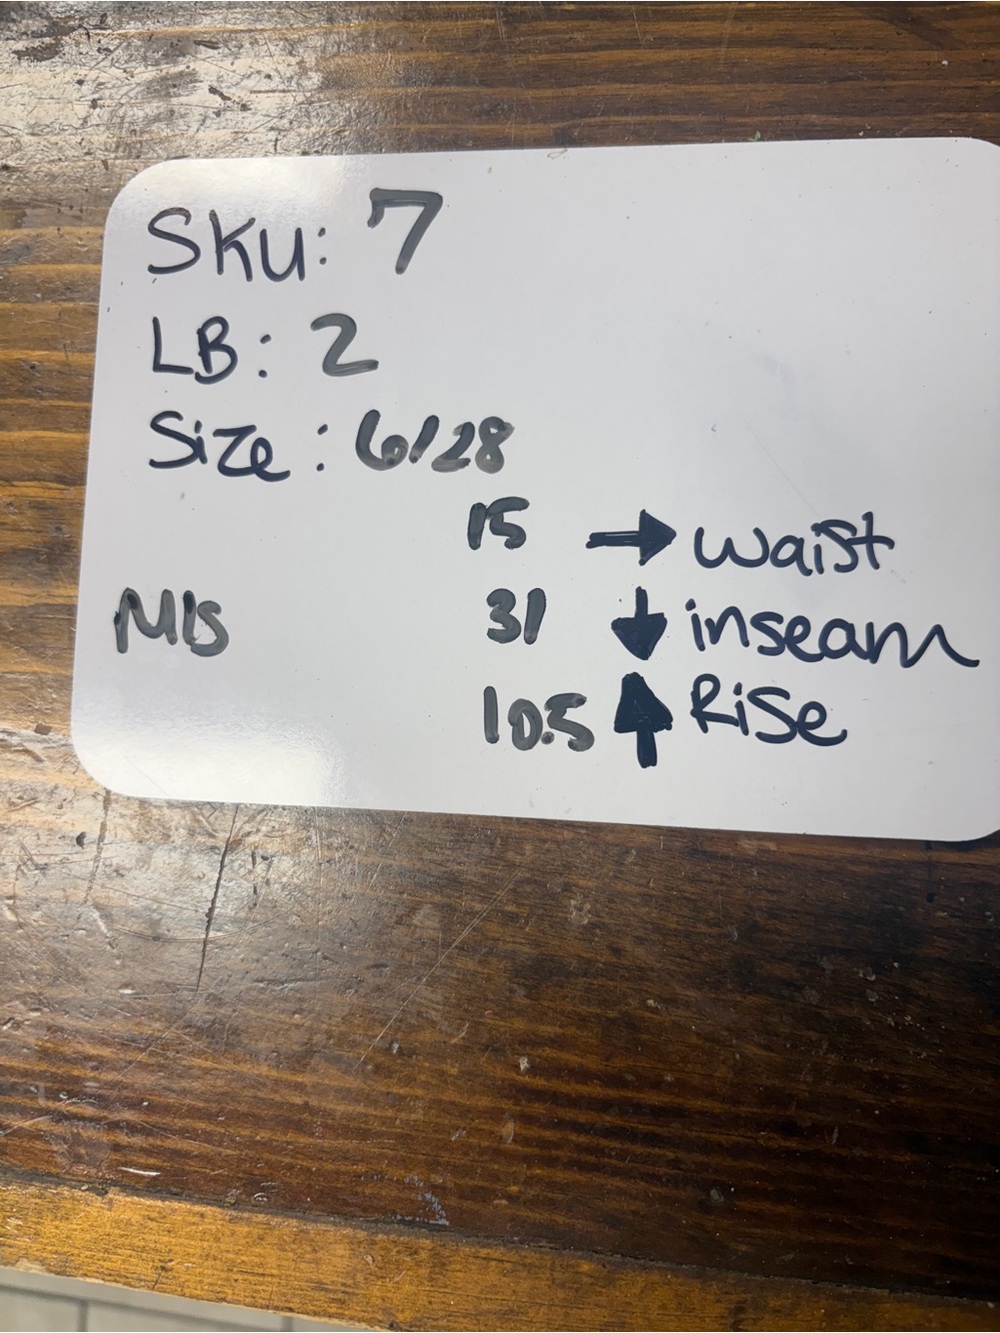 SKU: 7
LB: 2
Size: 6/28
15 → waist
31 ↓ inseam
10.5 ↑ Rise